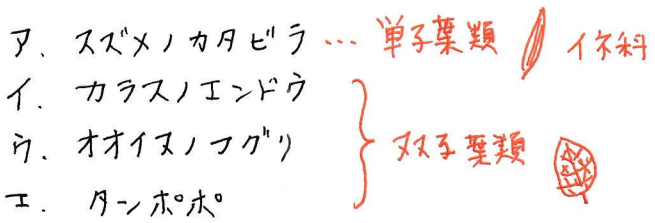 ア. スズメノカタビラ … 単子葉類 イネ科
イ. カラスノエンドウ
ウ. オオイヌノフグリ
双子葉類
エ. タンポポ